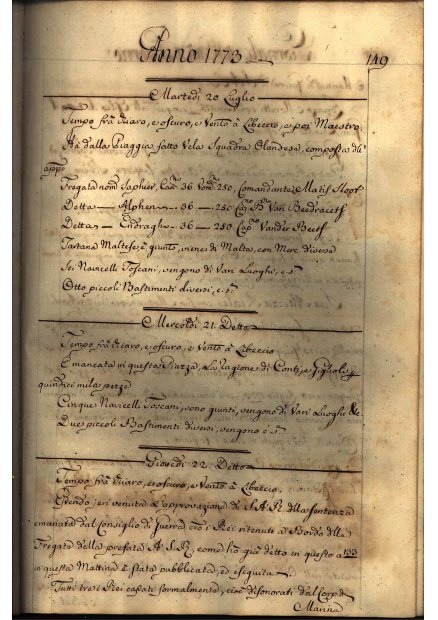 Anno 1773
149
Martedì 20 Luglio
Tempo frà chiaro, e oscuro, e Vento à Libeccio, e poi Maestro
Hà dalla Piaggia fatto Vela Squadra Olandese, composta di
appo
Fregata nom Saphier, Can 36 Uom 250, Comandante Matis Sloof
Detta — Alphen — 36 — 250 Van Beedracets
Detta — Endragh — 36 — 250 Cap Vander Beets
Tartana Maltese è giunta, viene di Malta, con Merc diverse
Sei Navicelli Toscani, vengono di Vari Luoghi, e
Otto piccoli Bastimenti diversi, e
Mercoldì 21 Detto
Tempo frà chiaro, e oscuro, e Vento à Libeccio
È mancata in questa Piazza, La Ragione di Conti, e Figlioli
quindici mila pezze
Cinque Navicelli Toscani, sono giunti, vengono di Vari Luoghi &c
Due piccoli Bastimenti diversi, vengono e
Giovedì 22 Detto
Tempo frà chiaro, e oscuro, e Vento à Libeccio
Essendo jeri venuta L'approvazione di S. A. R. alla sentenza
emanata dal Consiglio di Guerra, trò i Rei ritenuti à Bordo della
Fregata della prefata A. S. R. come ho già detto in questo a 133
in questa Mattina è stata pubblicata, ed eseguita
Tutti tre i Rei cassati formalmente, cioè disonorati dal Corpo di
Marina